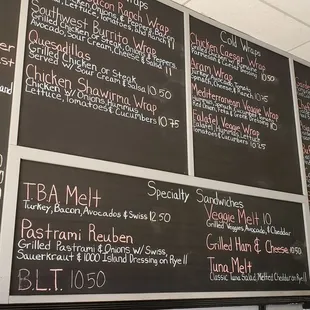 Wraps
Bacon Ranch Wrap
Lettuce, Tomatoes, Onions, & Pepper
Southwest Burrito Wrap
Grilled Chicken, Onions, Peppers,
Avocado, Sour Cream, Cheese & Salsa 11
Quesadillas
Grilled Chicken or Steak
Served w/ Sour Cream & Salsa 10.50
Chicken Shawirma Wrap
Chicken w/ Onions, Hummus,
Lettuce, Tomatoes & Cucumbers 10.75
Cold Wraps
Chicken Caesar Wrap
Grilled Chicken, Romaine,
Aram Wrap
Turkey, Avocado,
Mediterranean Veggie Wrap
Falafel Veggie Wrap
Falafel, Hummus, Lettuce,
Tomatoes & Cucumbers 10.50
Specialty Sandwiches
T.B.A Melt
Turkey, Bacon, Avocados & Swiss 12.50
Pastrami Reuben
Grilled Pastrami & Onions w/ Swiss,
Sauerkraut & 1000 Island Dressing on Rye 11
B.L.T. 10.50
Veggie Melt 10
Grilled Veggies, Avocado, & Cheddar
Grilled Ham & Cheese 10.50
Tuna Melt
Classic Tuna Salad, Melted Cheddar on Rye 11